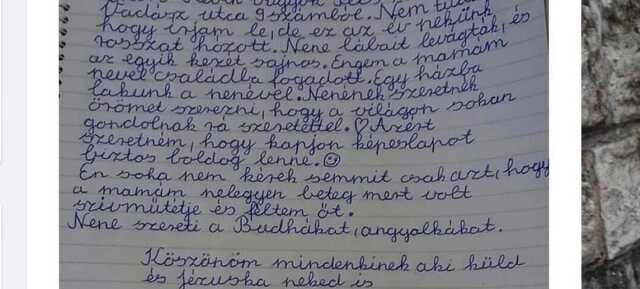 Vadász utca 9 számból. Nem tudom
hogy írjam le, de ez az év nekünk
rosszat hozott. Nene lábait levágták, és
az egyik kezét sajnos. Engem a mamám
nevel családba fogadott. Egy házba
lakunk a nenével. Nenének szeretnék
örömet szerezni, hogy a világon sokan
gondolnak rá szeretettel. ♡ Azért
szeretném, hogy kapjon képeslapot
biztos boldog lenne. ☺
Én soha nem kérek semmit csak azt, hogy
a mamám nelegyen beteg mert volt
szivműtétje és féltem őt.
Nene szereti a Budhákat, angyalkákat.
Köszönöm mindenkinek aki küld
és jézuska neked is